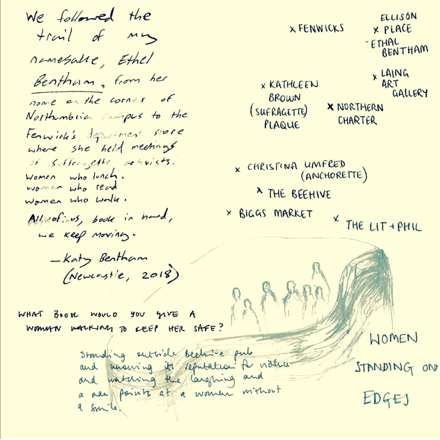 We followed the
trail of my
namesake, Ethel
Bentham, from her
home on the corner of
Northumbria campus to the
Fenwick's department store
where she held meetings
of suffragette activists.
Women who lunch.
women who read
women who walk.
All of us, book in hand,
we keep moving.
— Katy Bentham
(Newcastle, 2018)
x FENWICKS
ELLISON
x PLACE
-ETHAL
BENTHAM
x LAING
ART
GALLERY
x KATHLEEN
BROWN
(SUFRAGETTE)
PLAQUE
x NORTHERN
CHARTER
x CHRISTINA UMFRED
(ANCHORETTE)
x THE BEEHIVE
x BIGGS MARKET
x THE LIT + PHIL
WHAT BOOK WOULD YOU GIVE A
WOMAN WALKING TO KEEP HER SAFE?
Standing outside Beehive pub
and knowing its reputation for violence
and watching the laughing and
a man points at a woman without
a smile.
WOMEN
STANDING ON
EDGES